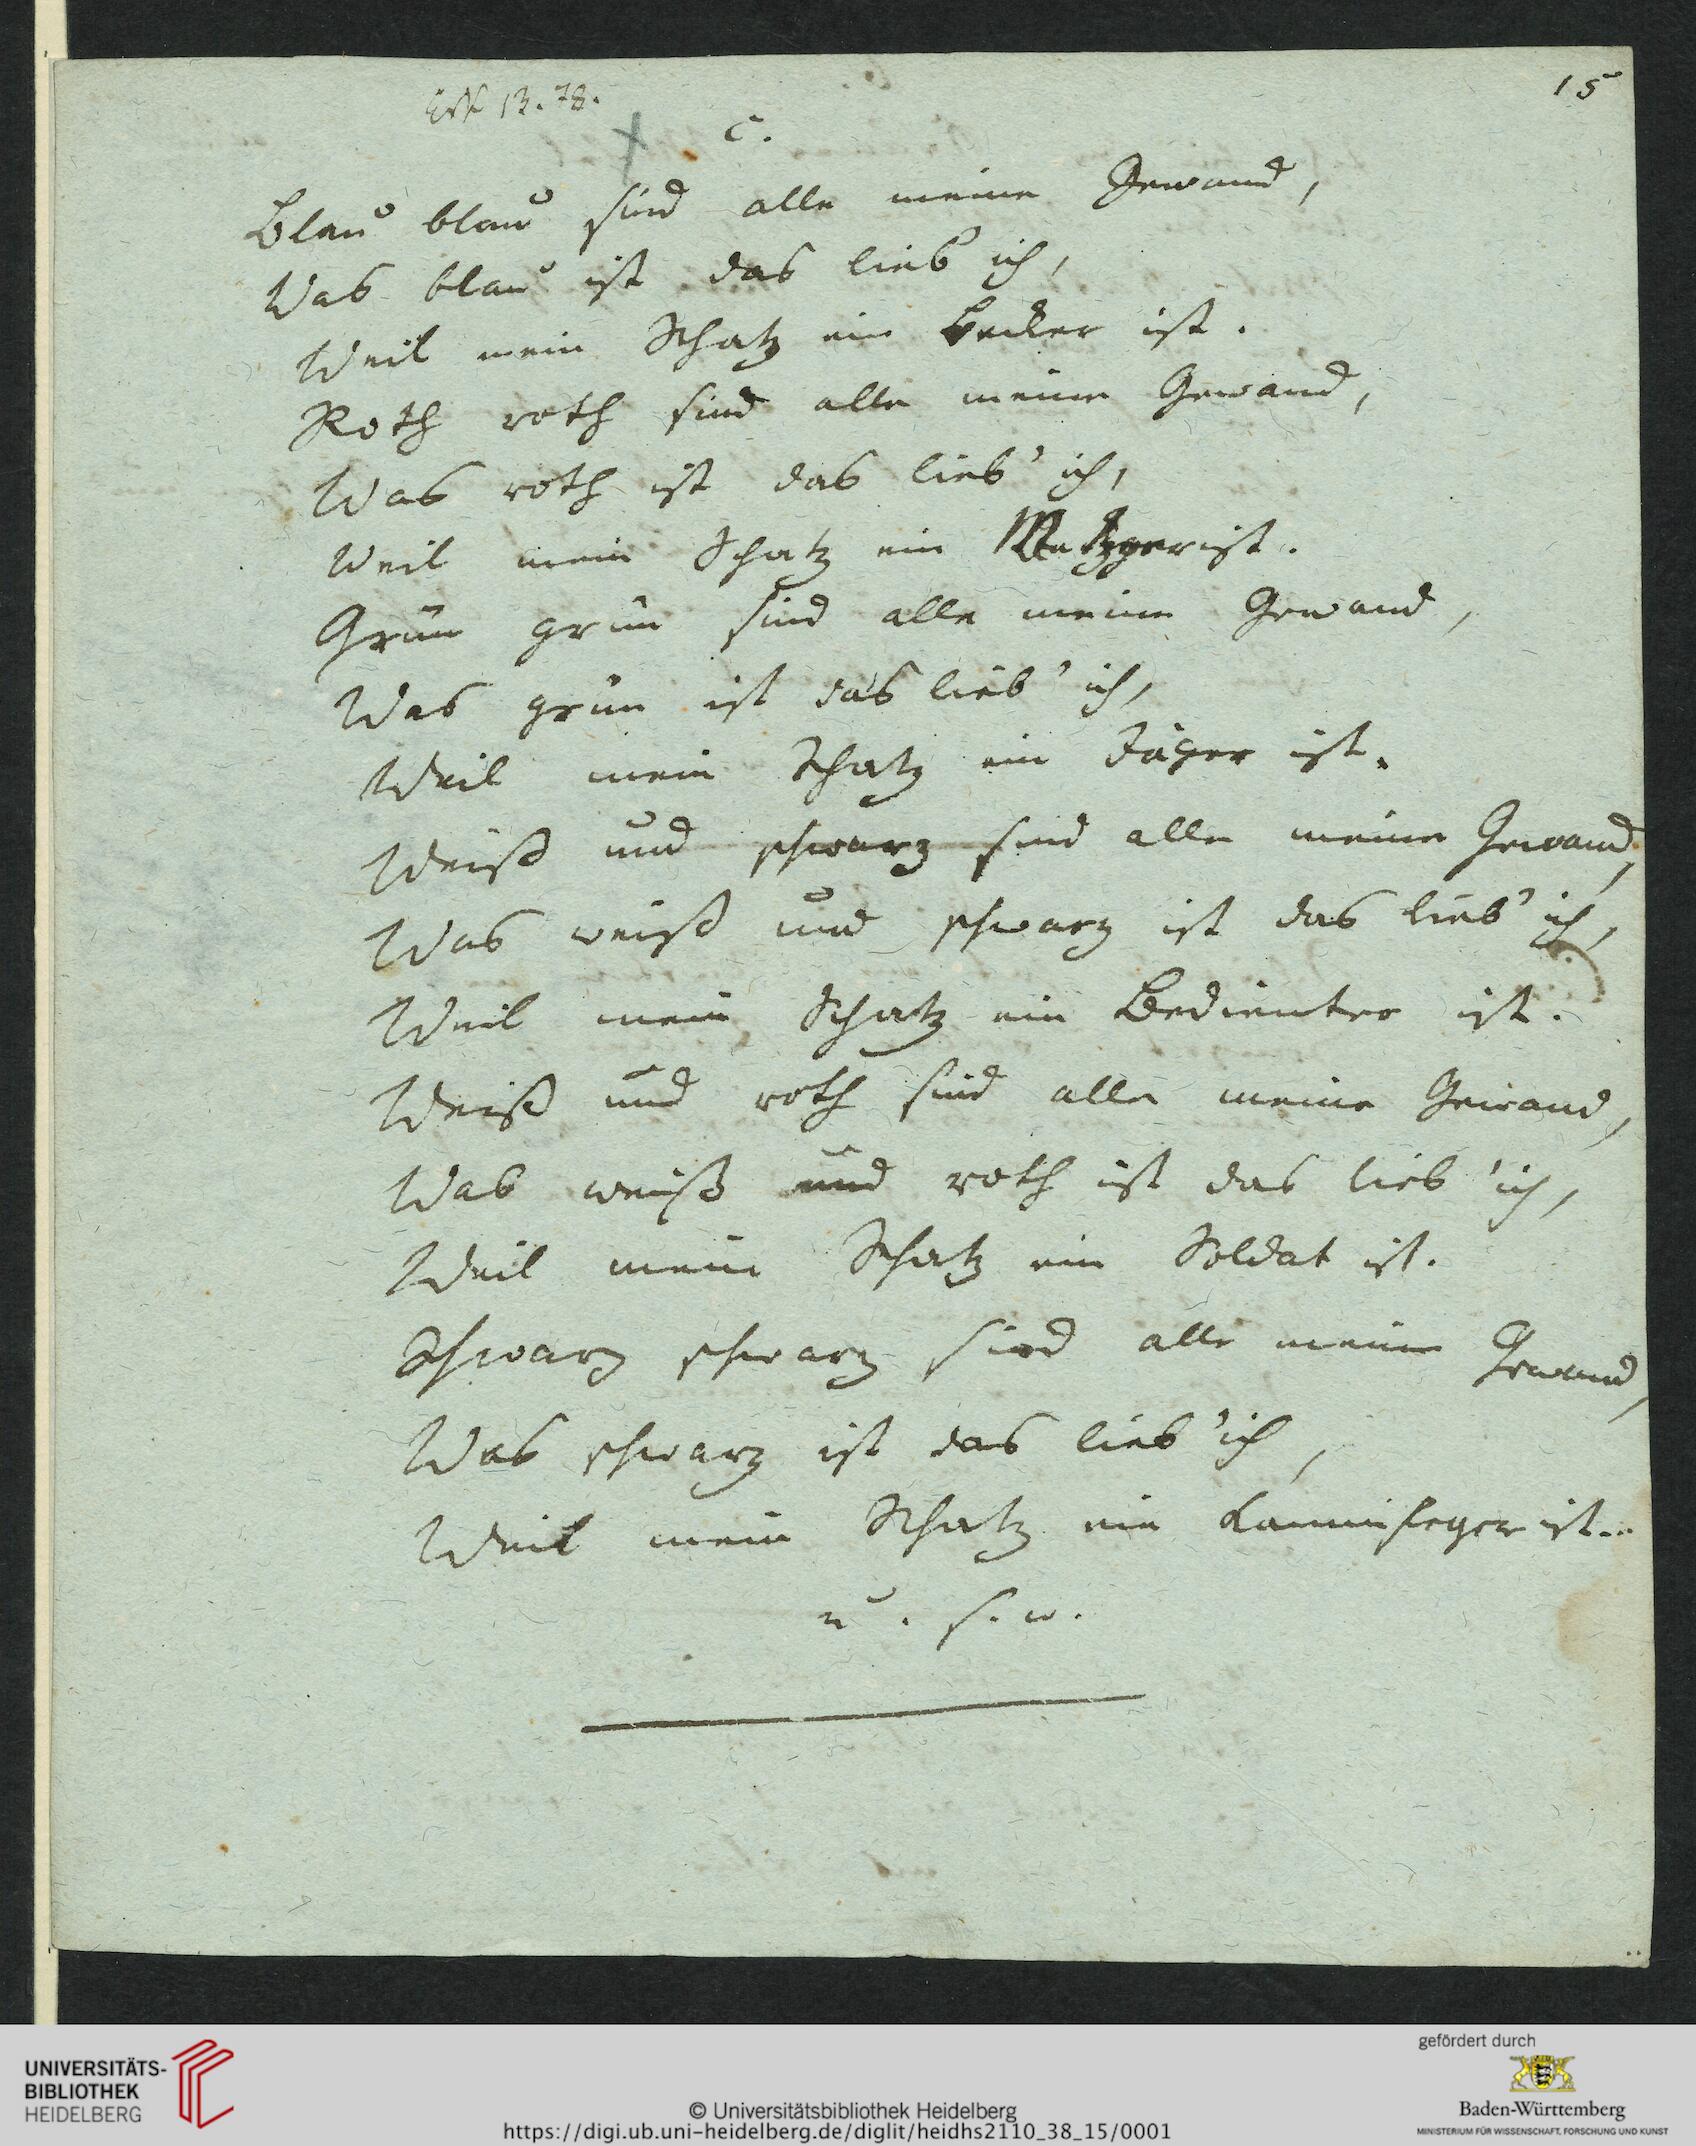 15
Erk 13.78.
c.
Blau blau sind alle meine Gewand,
Was blau ist das lieb ich,
Weil mein Schatz ein Becker ist.
Roth roth sind alle meine Gewand,
Was roth ist das lieb' ich,
Weil mein Schatz ein Metzger ist.
Grün grün sind alle meine Gewand,
Was grün ist das lieb' ich,
Weil mein Schatz ein Jäger ist.
Weiß und schwarz sind alle meine Gewand,
Was weiß und schwarz ist das lieb' ich,
Weil mein Schatz ein Bedienter ist.
Weiß und roth sind alle meine Gewand,
Was weiß und roth ist das lieb 'ich,
Weil mein Schatz ein Soldat ist.
Schwarz schwarz sind alle meine Gewand,
Was schwarz ist das lieb 'ich,
Weil mein Schatz ein Kaminfeger ist.
u. s. w.
UNIVERSITÄTS-
BIBLIOTHEK
HEIDELBERG
© Universitätsbibliothek Heidelberg
https://digi.ub.uni-heidelberg.de/diglit/heidhs2110_38_15/0001
gefördert durch
Baden-Württemberg
MINISTERIUM FÜR WISSENSCHAFT, FORSCHUNG UND KUNST